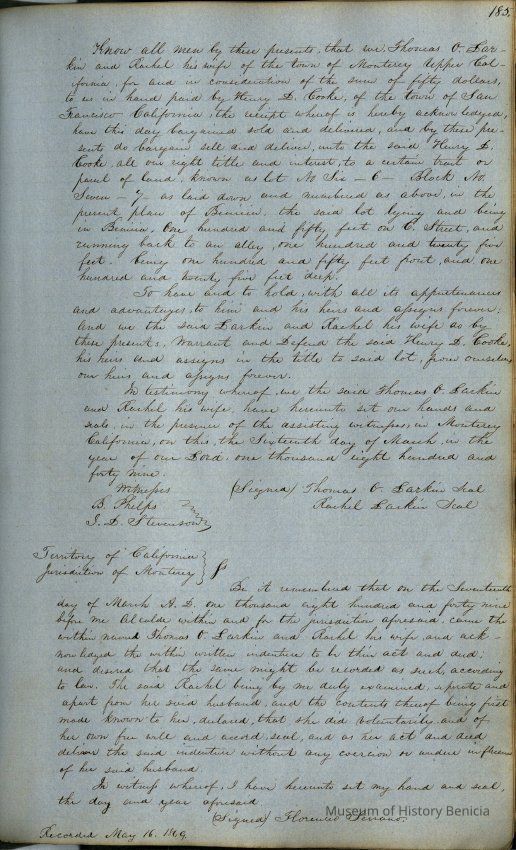 185.
Know all men by these presents, that we, Thomas O. Lar-
kin and Rachel his wife of the town of Monterey Upper Cal-
ifornia, for and in consideration of the sum of fifty dollars,
to us in hand paid by Henry D. Cooke, of the town of San
Francisco California, the receipt whereof is hereby acknowledged,
have this day bargained sold and delivered, and by these pre-
sents do bargain sell and deliver, unto the said Henry D.
Cooke, all our right title and interest, to a certain tract or
parcel of land, known as lot No Six - 6 - Block No.
Seven - 7 - as laid down and numbered as above, in the
present plan of Benicia, the said lot lying and being
in Benicia, One hundred and fifty feet on C. Street, and
running back to an alley, one hundred and twenty five
feet. being one hundred and fifty feet front, and one
hundred and twenty five feet deep.
To have and to hold, with all its appurtenances
and advantages, to him and his heirs and assigns forever:
And we the said Larkin and Rachel his wife do by
these presents, Warrant and Defend the said Henry D. Cooke,
his heirs and assigns in the title to said lot, from ourselves
our heirs and assigns forever.
In testimony whereof, we the said Thomas O. Larkin
and Rachel his wife, have hereunto set our hands and
seals, in the presence of the assisting witnesses, in Monterey
California, on this, the Sixteenth day of March, in the
year of our Lord, one thousand eight hundred and
forty nine.
Witnesses (Signed) Thomas O. Larkin Seal
B. Phelps Rachel Larkin Seal
J. D. Stevenson
Territory of California
Jurisdiction of Monterey
Be it remembered that on the Seventeenth
day of March A. D. one thousand eight hundred and forty nine
before me Alcalde within and for the jurisdiction aforesaid, came the
within named Thomas O. Larkin and Rachel his wife, and ack-
nowledged the within written indenture to be their act and deed;
and desired that the same might be recorded as such, according
to law. The said Rachel being by me duly examined, seperate and
apart from her said husband, and the contents thereof being first
made known to her, declared, that she did voluntarily, and of
her own free will and accord, seal, and as her act and deed
deliver the said indenture without any coercion or undue influence
of her said husband.
In witness whereof, I have hereunto set my hand and seal,
the day and year aforesaid
(Signed) Florencio Serrano.
Recorded May 16. 1849.
Museum of History Benicia